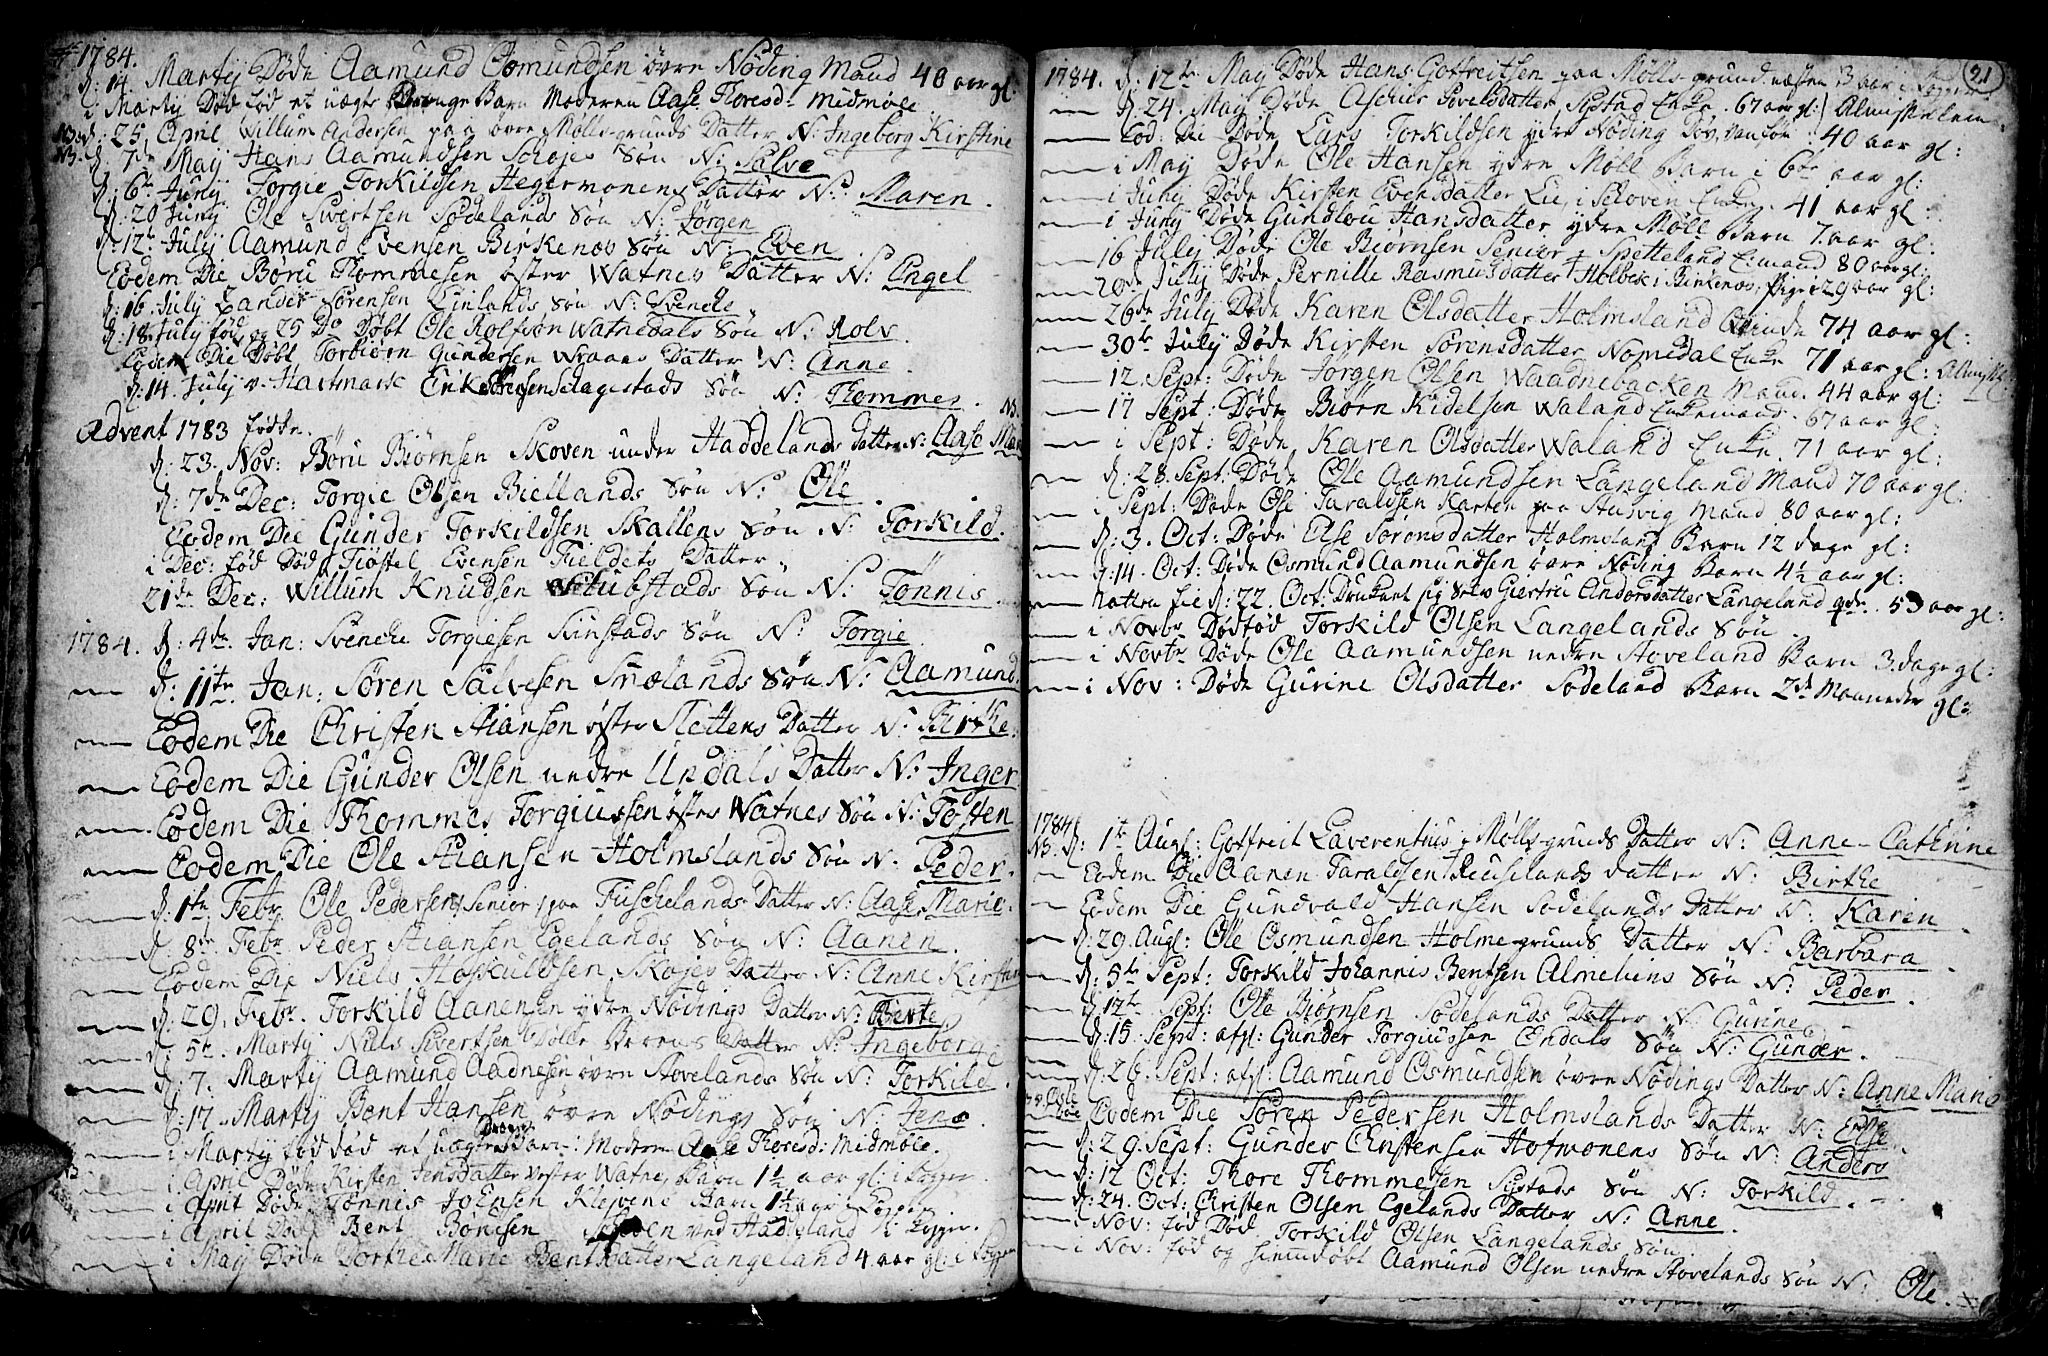 1784.
d: 14. Martij Døde Aamund Osmundsen øvre Nøding Mand 40 aar gl:
i Martij Død fød et uægte Drenge Barn Moderen Aase Thoresd: Midmøle
NB. d: 25 April Willum Andersen paa øvre Mølls-grunds Datter N: Ingeborg Kirstine
NB. d: 7de May Hans Aamundsen Schojes Søn N: Salve
d: 6te Junij Torgie Torkildsen Hegermonens Datter N: Maren.
d: 20 Junij Ole Sivertsen Sødelands Søn N: Jørgen
d: 12te Julij Aamund Evensen Birkenæs Søn N: Even
Eodem Die Børu Thommesen øster Watnes Datter N: Engel
d: 16 Julij Sørensen Søn N: Svenche
d: 18 Julij fød og 25 Do Døbt Ole Rolfsøn Watnedals Søn N: Rolv.
Eodem Die Døbt Torbiørn Gundersen Wraaes Datter N: Anne
d: 14. Julij v. Hartmark Erik Selagestads Søn N: Thommes.
Advent 1783 fødte.
d: 23. Nov: Børu Biørnsen Skoven under Haddelands datter N: Aase
d: 7de Dec: Torgie Olsen Biellands Søn N: Ole.
Eodem Die Gunder Torkildsen Skallens Søn N: Torkild.
i Dec: fød Død Tiøstel Evensen Fieldets Datter.
21de Dec: Willum Knudsen Stubstads Søn N: Tønnis.
1784. d: 4de Jan: Svenche Torgiesen Sunstads Søn N: Torgie
d: 11te Jan: Søren Salvesen Smælands Søn N: Aamund
Eodem Die Christen Stiansen øster Slettens Datter N: Birthe.
Eodem Die Gunder Olsen nedre Undals Datter N: Inger
Eodem Die Thommes Torgiussen øster Watnes Søn N: Tosten
Eodem Die Ole Stiansen Holmslands Søn N: Peder.
d: 1te Febr: Ole Pedersen Senior paa Fuschelands Datter N: Aase Marie.
d: 8de Febr: Peder Stiansen Egelands Søn N: Aanen.
Eodem Die Niels Hoskuldsen Skojes Datter N: Anne Kirsten
d: 29. Febr: Torkild Aanensen ydre Nødings Datter N: Berte
d: 5te Martij Niels Sivertsen Datter N: Ingeborg.
d: 7. Martij Aamund Aadnesen øvre Stovelands Søn N: Torkild.
d: 17. Martij Bent Hansen øvre Nødings Søn N: Jens.
i Martij fød død et uægte Drenge Barn: Moderen Aase Thoresd: Midmøle.
i April Døde Kirsten Jensdatter vester Watne, Barn 1½ aar gl: i
April Døde Tønnis Johnsen Klevene Barn 1½ aar i
i April Død Bent Bønesen ved Haddeland i
i May Døde Dorthe Marie Bentsdatter Langeland 4 aar gl: i
21
1784. d: 12te May Døde Hans Gotfreitsen paa Mølls-grund næsten 3 aar i
d: 24. May Døde Aschier Povelsdatter Systad Enke. 67 aar gl: Almisselem
Eod: Die Døde Lars Torkildsen ydre Nøding Døv, 40 aar gl:
i May Døde Ole Hansen ydre Møll Barn i 6te aar gl:
i Junij Døde Kirsten Evensdatter Lie, i Schoven Enke. 41 aar gl:
i Junij Døde Gundlou Hansdatter ydre Møll Barn 7. aar gl:
16 Julij Døde Ole Biørnsen Senior Spetteland Emand 80 aar gl:
20de Julij Døde Pernille Rasmusdatter Holbek i Birkenæs, Pige 29 aar gl:
26de Julij Døde Karen Olsdatter Holmsland Qvinde 74 aar gl:
30te Julij Døde Kirsten Sørensdatter Nomedal Enke 71 aar gl: Almisse
12. Sept: Døde Jørgen Olsen Waadnebacken Mand. 44 aar gl:
17 Sept: Døde Biørn Kidelsen Waland Enkemand. 67 aar gl:
i Sept: Døde Karen Olsdatter Waland Enke. 71 aar gl:
d: 28. Sept: Døde Ole Aamundsen Langeland Mand 70 aar gl:
i Sept: Døde Ole Taraldsen Karten paa Ausvig Mand 80 aar gl:
d: 3. Oct: Døde Else Sørensdatter Holmsland Barn 12 dage gl:
d: 14. Oct: Døde Osmund Aamundsen øvre Nøding Barn 4½ aar gl:
Natten til d: 22. Oct: Druknet sig Selv Giertru Andersdatter Langeland qde. 53 aar gl:
i Novbr Dødfød Torkild Olsen Langelands Søn
i Novbr Døde Ole Aamundsen nedre Stoveland Barn 3. dage gl:
i Nov: Døde Gurine Olsdatter Sødeland Barn 2de Maaneder gl:
1784
NB. d: 1te Aug: Gotfreit Laverentius Mølls-grunds Datter N: Anne-Cathrine
Eodem Die Aanen Taraldsen Reuselands datter N: Birthe
Eodem Die Gundvald Hansen Sødelands Datter N: Karen
d: 29. Aug: Ole Osmundsen Holme-grunds Datter N: Barbara.
d: 5te Sept: Torkild Johannis Bentsen Almeliens Søn N: Peder.
d: 12te Sept: Ole Biørnsen Sødelands Datter N: Gurine
d: 15. Sept: afgl: Gunder Torgiussen Endals Søn N: Gunder.
d: 26. Sept: afgl: Aamund Osmundsen øvre Nødings Datter N: Anne Marie
Eodem Die Søren Pedersen Holmslands Datter N: Else
d: 29. Sept: Gunder Christensen Hofmonens Søn N: Anders
d: 12 Oct: Thore Thommesen Systads Søn N: Torkild.
d: 24. Oct: Christen Olsen Egelands Datter N: Anne.
i Nov: fød Død Torkild Olsen Langelands Søn
i Nov: fød og hiemmdøbt Aamund Olsen nedre Stovelands Søn N: Ole.